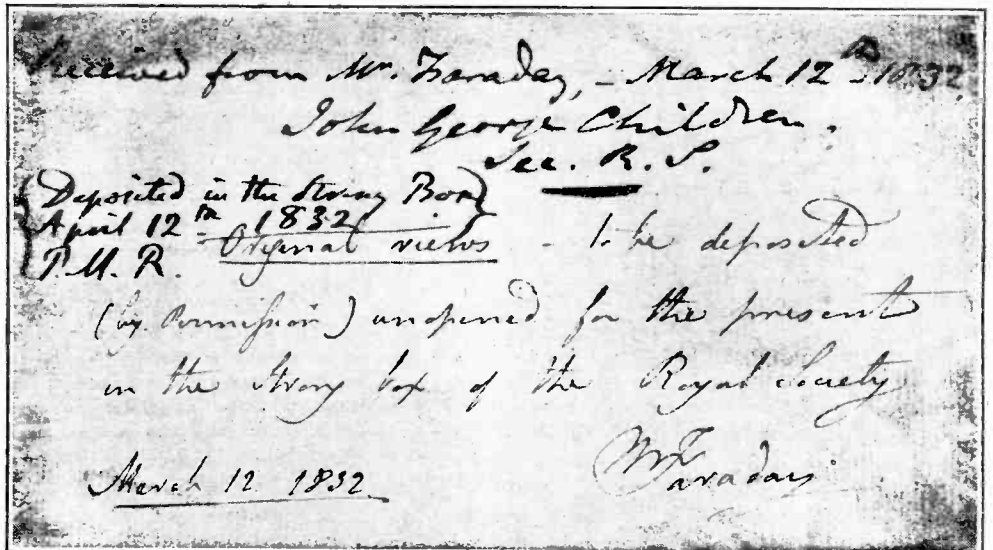 Received from Mr. Faraday, - March 12th 1832.
John George Children.
Sec. R. S.
Deposited in the Strong Box
April 12th 1832
P. M. R.
Original views - to be deposited
(by permission) unopened for the present
in the strong box of the Royal Society
M Faraday
March 12 1832